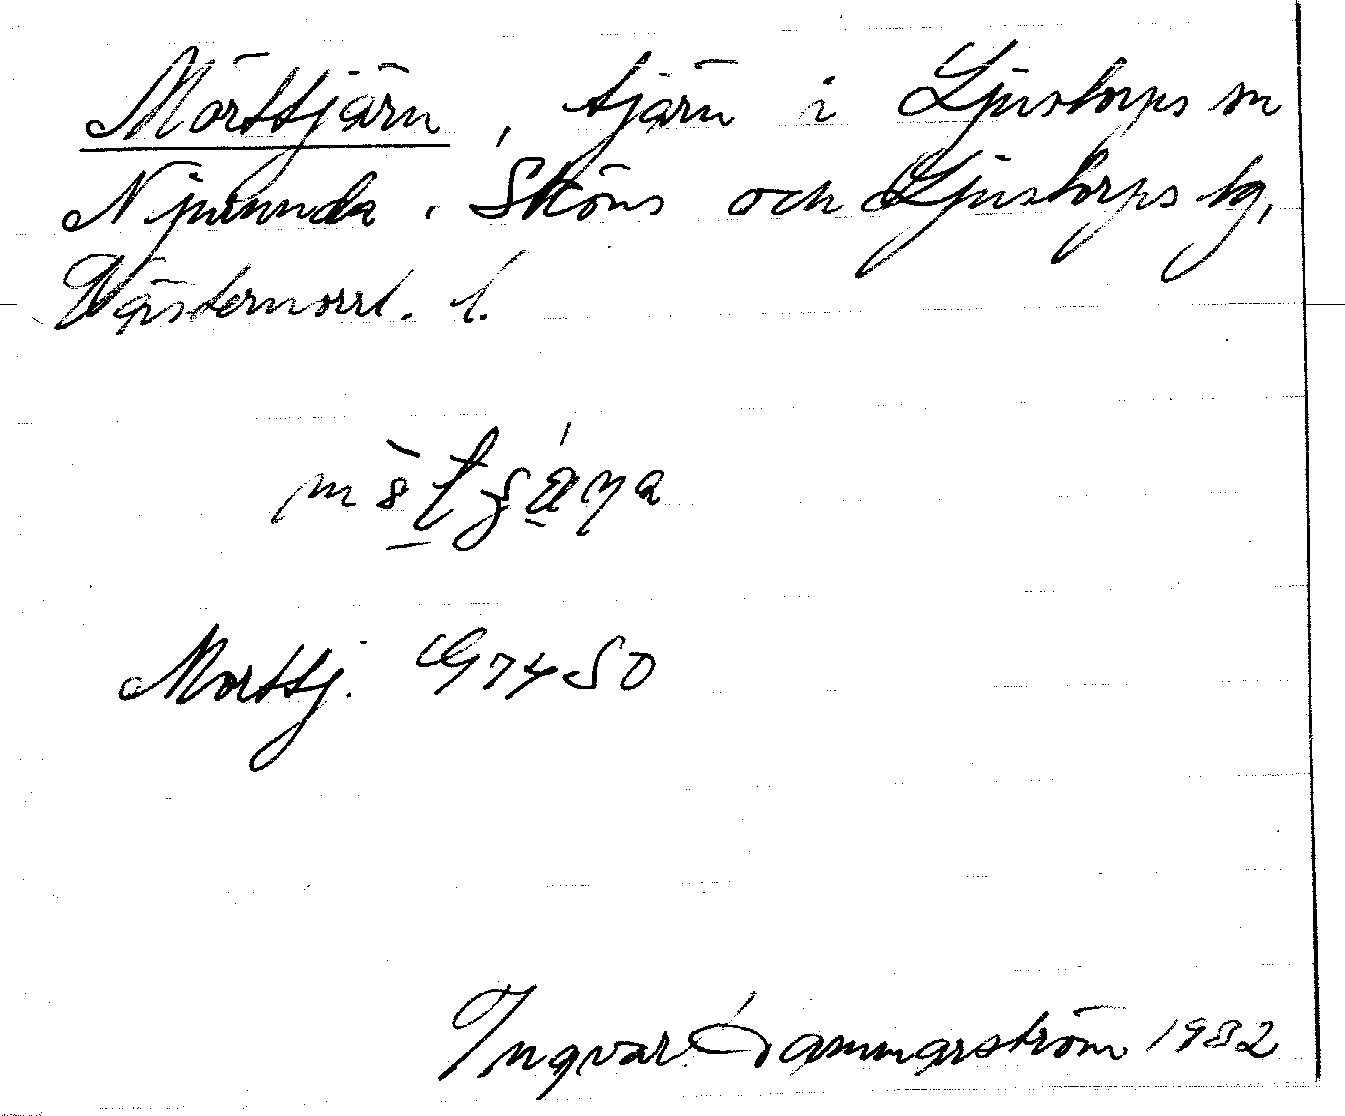 Mörttjärn, tjärn i Ljustorps sn
Njurunda, Sköns och Ljustorps tg,
Västernorrl. l.
Morttj. G7450
Ingvar Dammarström 1932